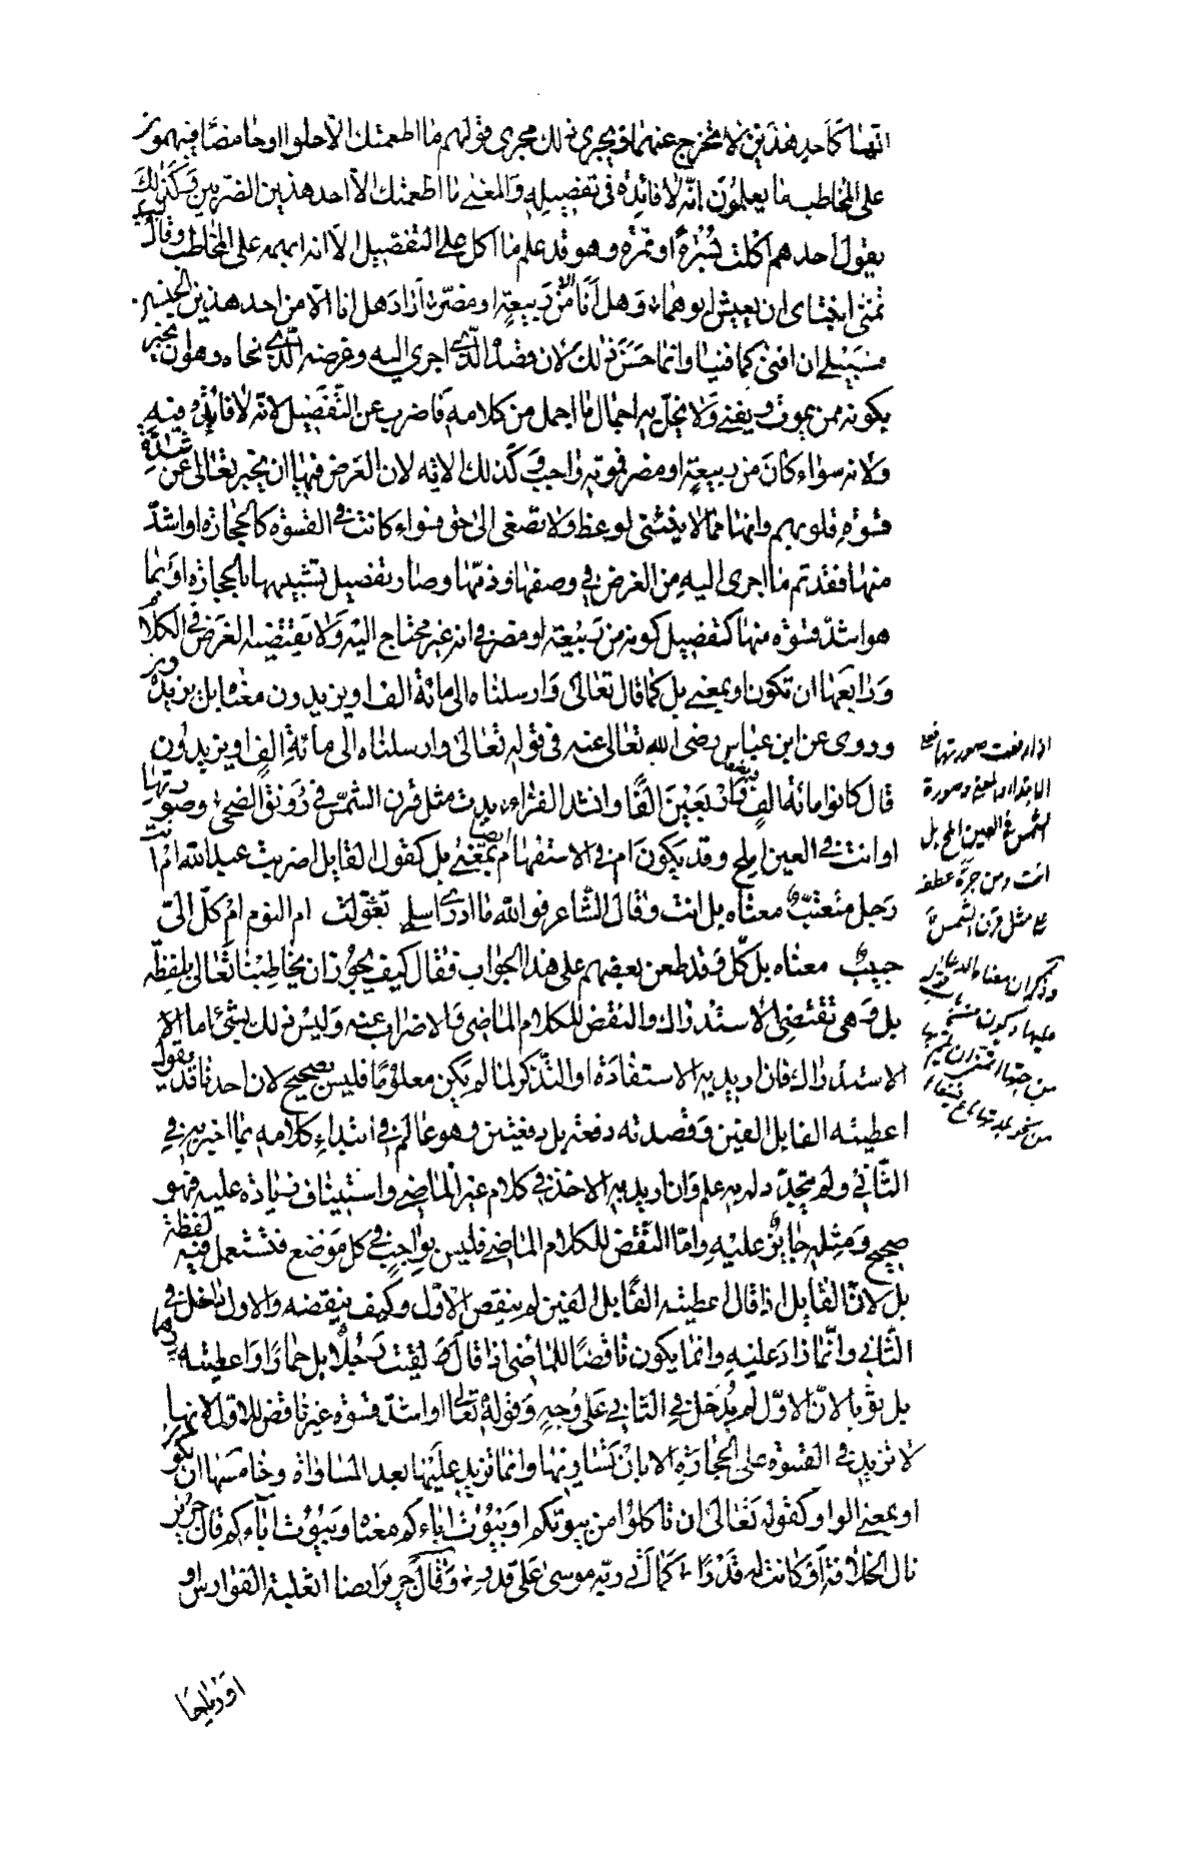 انها كاحد هذين لا تخرج عنهما ويجرى ذلك مجرى قولهم ما اطعمتك الا حلوا او حامضا فيبهمون
على المخاطب ما يعلمون انه لا فائدة فى تفصيله والمعنى ما اطعمتك الا احد هذين الضربين وكذلك
يقول احدهم اكلت بسرة او تمرة وهو قد علم ما اكل على التفصيل الا انه ابهمه على المخاطب وقال لبيد
تمنى ابنتاى ان يعيش ابوهما وهل انا الا من ربيعة او مضر اراد هل انا الا من احد هذين الجنسين
فسبيلى ان افنى كما فنيا وانما حسن ذلك لان قصده الذى اجرى اليه وغرضه الذى نحاه وهو ان يخبر
بكونه ممن يموت ويفنى ولا يخل به اجمال ما اجمل من كلامه فاضرب عن التفصيل لانه لا فائدة فيه
ولانه سواء كان من ربيعة او مضر فموته واجب وكذلك الاية لان الغرض فيها ان يخبر تعالى عن شدة
قسوة قلوبهم وانها مما لا ينثنى لوعظ ولا تصغى الى حق فسواء كانت فى القسوة كالحجارة او اشد
منها فقد تم ما اجرى اليه من الغرض فى وصفها وذمها وصار تفصيل تشبيهها بالحجارة او بما
هو اشد قسوة منها كتفصيل كونه من ربيعة او مضر فى انه غير محتاج اليه ولا يقتضيه الغرض فى الكلام
ورابعها ان تكون او بمعنى بل كما قال تعالى وارسلناه الى مائة الف او يزيدون معناه بل يزيدون
وروى عن ابن عباس رضى الله تعالى عنه فى قوله تعالى وارسلناه الى مائة الف او يزيدون
قال كانوا مائة الف وبضعا واربعين الفا وانشد الفراء بدت مثل قرن الشمس فى رونق الضحى وصورتها
او انت فى العين املح وقد يكون ام فى الاستفهام ايضا بمعنى بل كقول القايل اضربت عبد الله ام انت
رجل متعنت معناه بل انت وقال الشاعر فوالله ما ادرى اسلمى تغولت ام النوم ام كل الى
حبيب معناه بل كل وقد طعن بعضهم على هذا الجواب فقال كيف يجوز ان يخاطبنا تعالى بلفظة
بل وهى تقتضى الاستدراك والنقض للكلام الماضى والاضراب عنه وليس ذلك بشىء اما الا
الاستدراك فان اريد به الاستفادة او التذكر لما لم يكن معلوما فليس بصحيح لان احدنا قد يقول
اعطيته الفا بل الفين وقصدته دفعة بل دفعتين وهو عالم فى ابتداء كلامه بما اخبر به فى
الثانى ولم يتجدد له به علم وان اريد به الاخذ فى كلام غير الماضى واستيناف زيادة عليه فهو
صحيح ومثله جايز عليه واما النقض للكلام الماضى فليس بواجب فى كل موضع تستعمل فيه لفظة
بل لان القايل اذا قال اعطيته الفا بل الفين لم ينقض الاول وكيف ينقضه والاول داخل فى
الثانى وانما زاد عليه وانما يكون ناقضا للماضى اذا قال لقيت رجلا بل حمارا واعطيته درهما
بل ثوبا لان الاول لم يدخل فى الثانى على وجه وقوله تعالى او اشد قسوة غير ناقض للاول لانها
لا تزيد فى القسوة على الحجارة الا بان تساويها وانما تزيد عليها بعد المساواة وخامسها ان تكون
او بمعنى الواو كقوله تعالى ان تاكلوا من بيوتكم او بيوت اباءكم معناه وبيوت اباءكم قال جرير
نال الخلافة او كانت له قدرا كما اتى ربه موسى على قدر وقال جرير ايضا اثعلبة الفوارس او
او رياحا
اذا رفعت صورتها فعلى
الابتداء والمعنى وصورة
الشمس فى العين املح بل
انت ومن جره عطفه
على مثل قرن الشمس